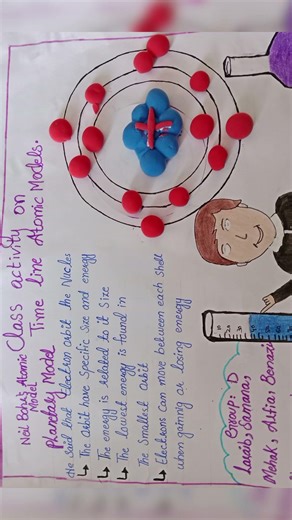 Class activity on
Time line Atomic Models.
Neil Bohr's Atomic
Model
Planetary Model
He said that Electron orbit the Nucles
↳ The orbit have Specific Size and energy
↳ The energy is related to it Size
↳ The lowest energy is found in
the Smallest orbit
↳ Electrons can move between each shell
when gaining or losing energy
Group: D
Laraib, Samana,
Mehak,